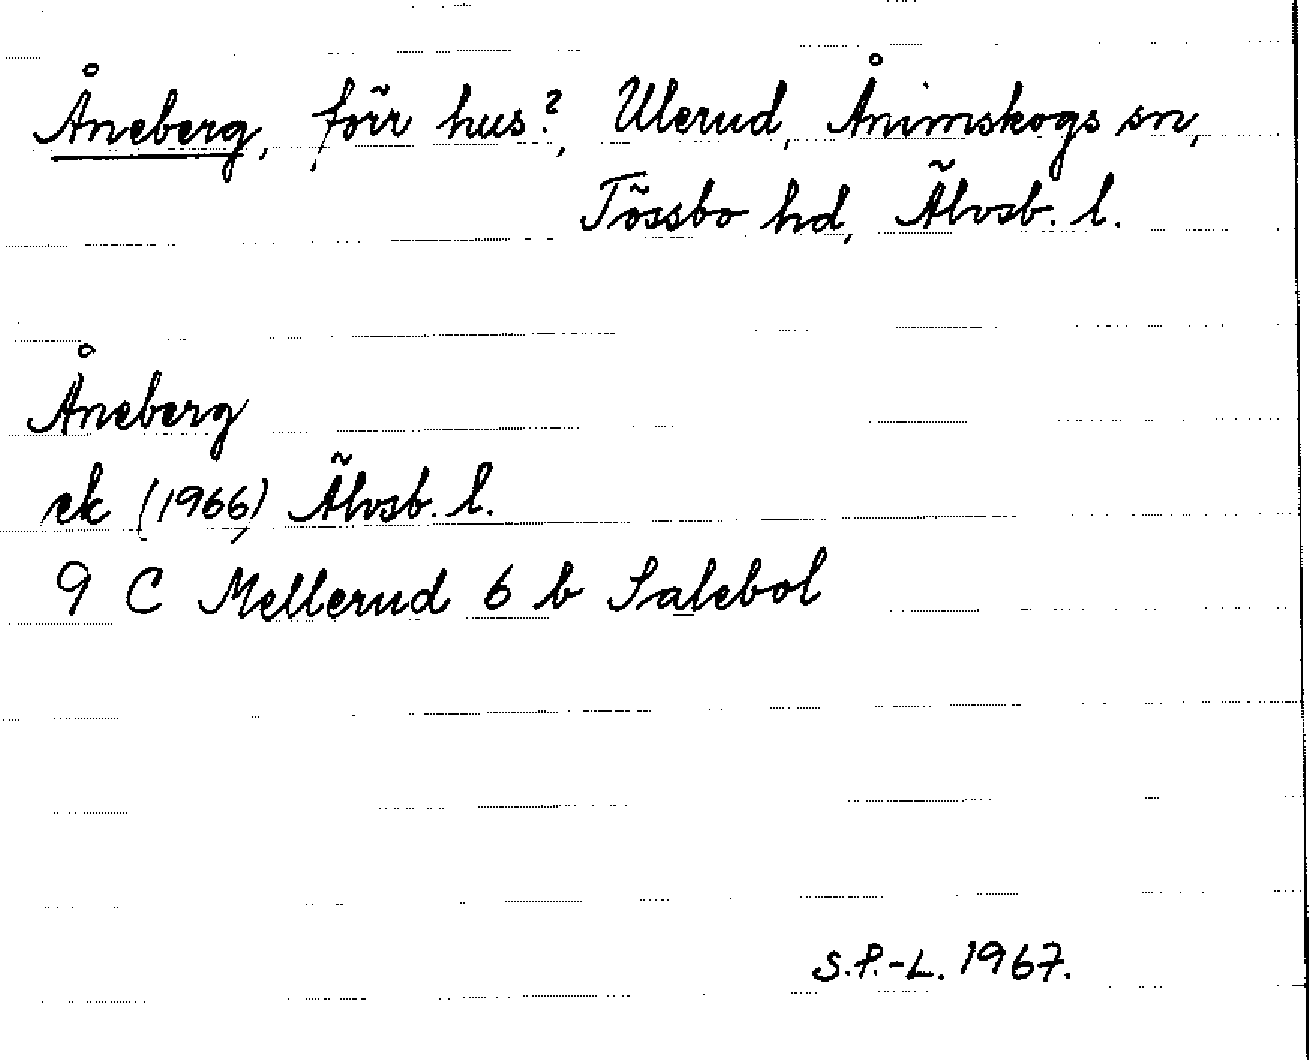 Åneberg, förr hus?, Ulerud, Ånimskogs sn,
Tössbo hd, Älvsb. l.
Åneberg
ek (1966) Älvsb. l.
9 C Mellerud 6 b Salebol
S.P.-L. 1967.